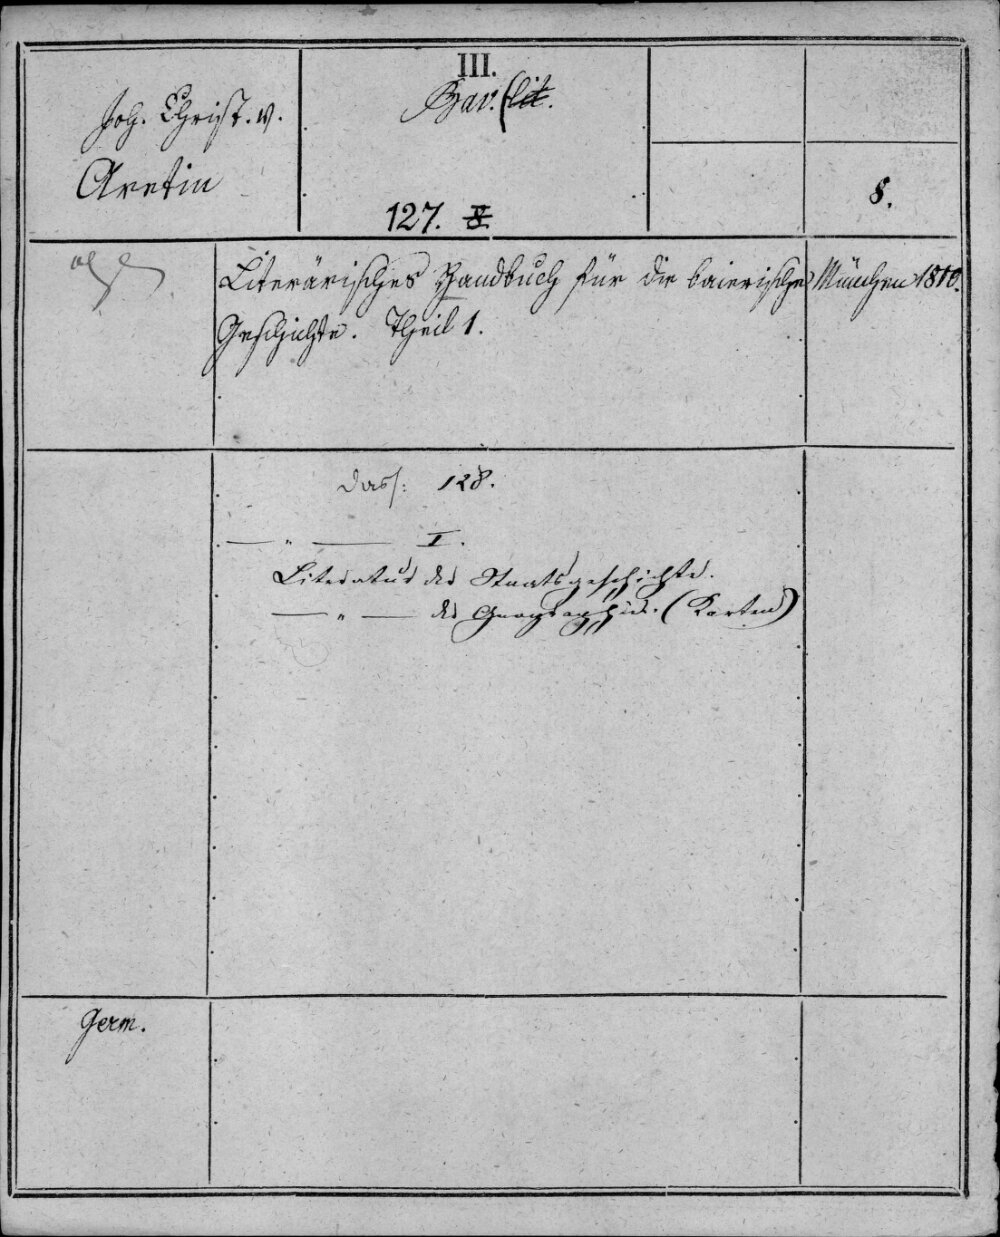 III.
Joh. Christ. v.
Bav. lit.
Aretin
127. 8
8.
Literärisches Handbuch für die baierische
München 1810.
Geschichte. Theil 1.
Dass: 128.
— " — I.
Literatur der Staatsgeschichte.
— " — der Geographie. (Karten)
Germ.